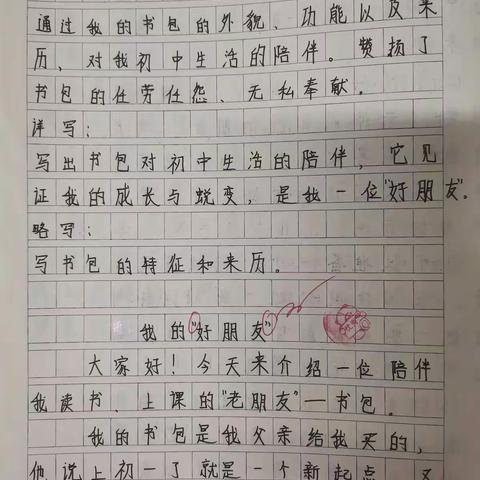 通过我的书包的外貌、功能以及来
历，对我初中生活的陪伴。赞扬了
书包的任劳任怨、无私奉献。
详写：
写出书包对初中生活的陪伴，它见
证我的成长与蜕变，是我一位“好朋友”。
略写：
写书包的特征和来历。
我的“好朋友”
大家好！今天来介绍一位陪伴
我读书、上课的“老朋友”—书包。
我的书包是我父亲给我买的，
他说上初一了就是一个新起点，又